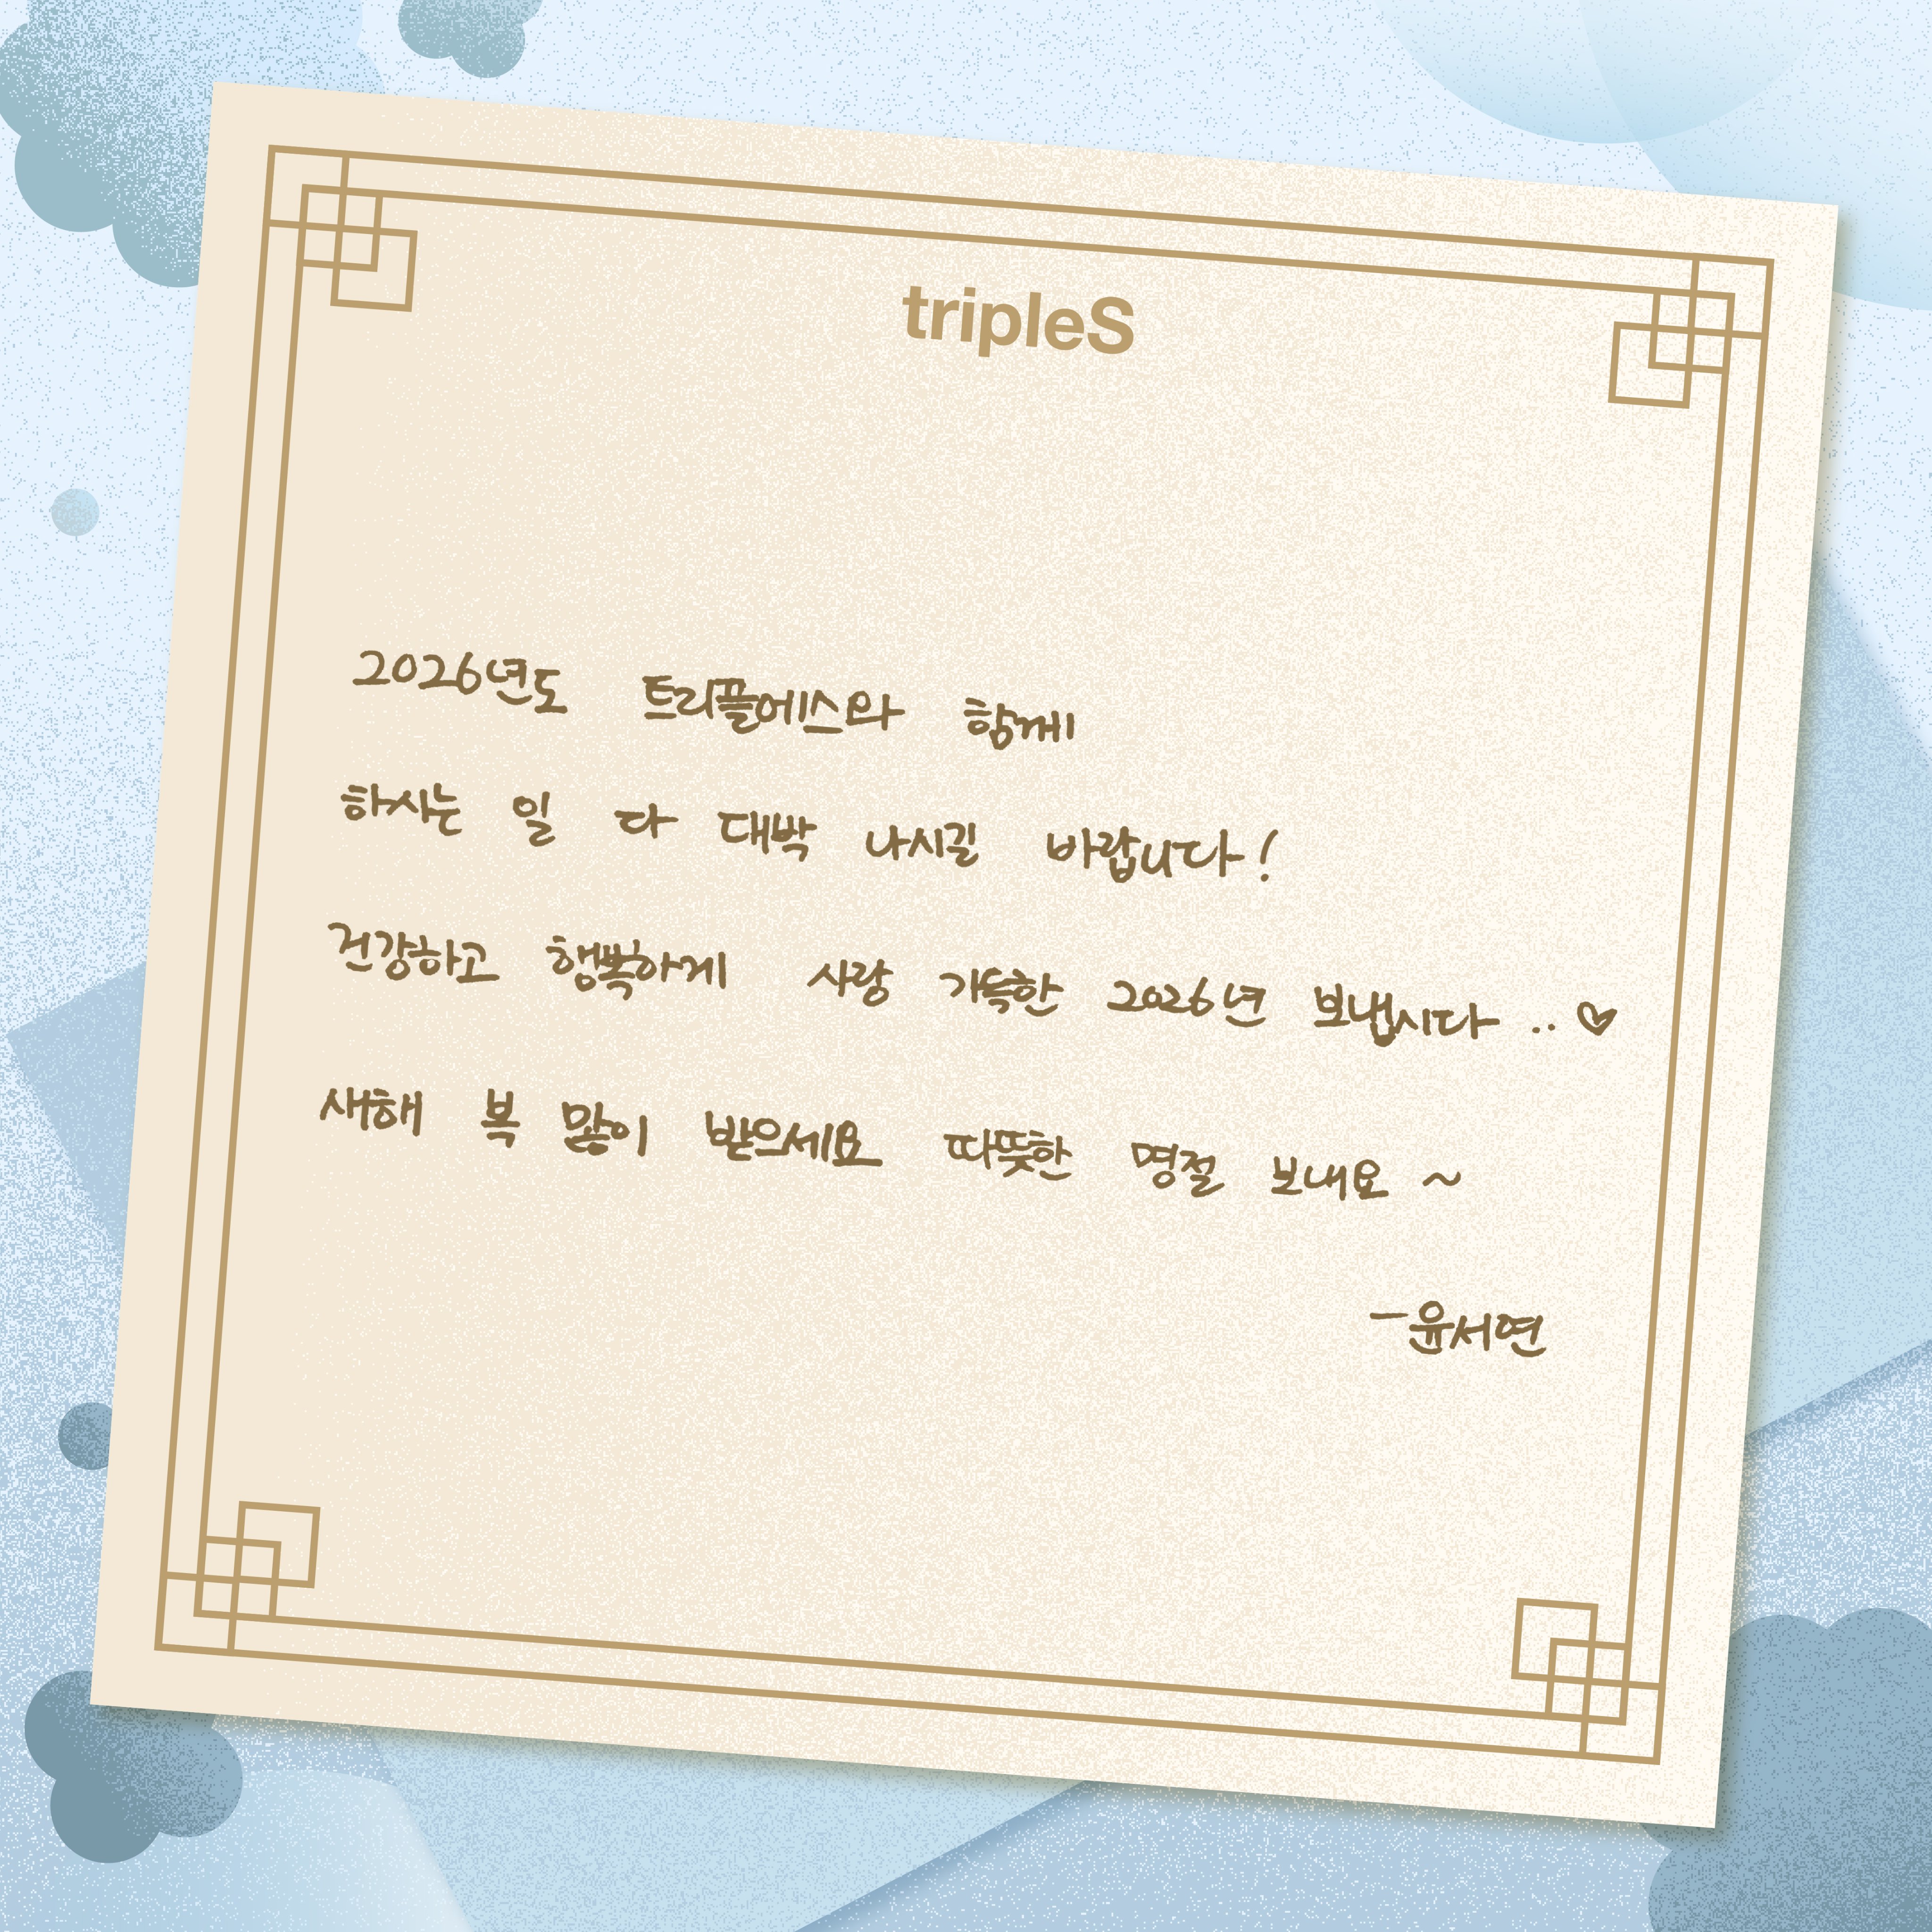 tripleS
2026년도 트리플에스와 함께
하시는 일 다 대박 나시길 바랍니다!
건강하고 행복하게 사랑 가득한 2026년 보냅시다 .. ♡
새해 복 많이 받으세요 따뜻한 명절 보내요 ~
- 윤서연